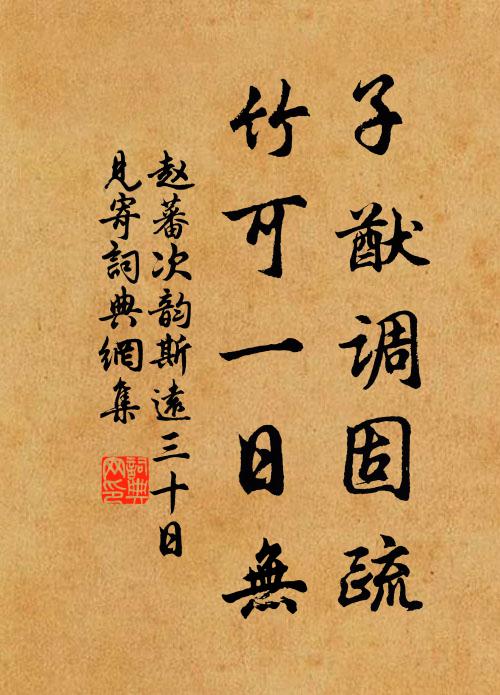 子猷调固疏
竹可一日無
赵蕃次韵斯遠三十日
見寄詞典網集
詞典网印